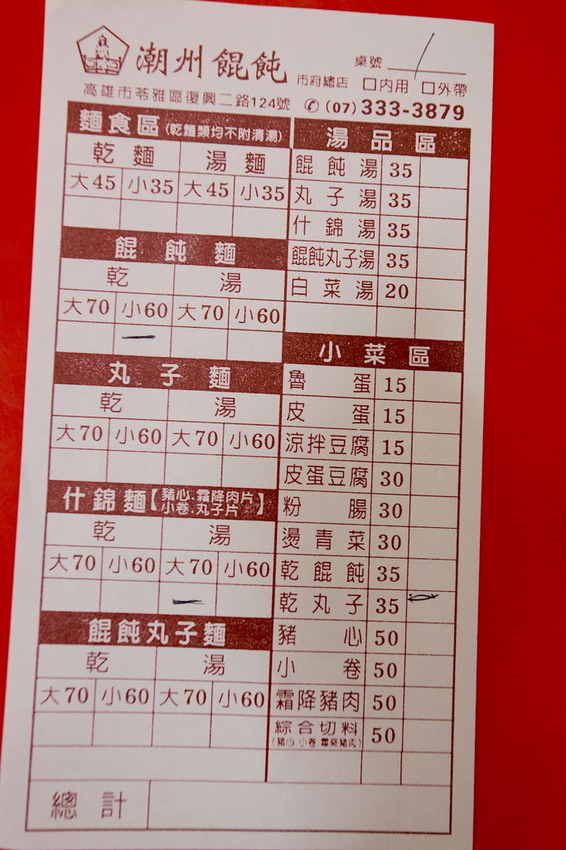 潮州餛飩
桌號 /
市府總店 □內用 □外帶
高雄市苓雅區復興二路124號 ✆(07)333-3879
麵食區(乾麵類均不附清湯)
乾麵 湯麵
大45 小35 大45 小35
餛飩麵
乾 湯
大70 小60 大70 小60
丸子麵
乾 湯
大70 小60 大70 小60
什錦麵【豬心.霜降肉片 小卷.丸子片】
乾 湯
大70 小60 大70 小60
餛飩丸子麵
乾 湯
大70 小60 大70 小60
湯品區
餛飩湯 35
丸子湯 35
什錦湯 35
餛飩丸子湯 35
白菜湯 20
小菜區
魯蛋 15
皮蛋 15
涼拌豆腐 15
皮蛋豆腐 30
粉腸 30
燙青菜 30
乾餛飩 35
乾丸子 35
豬心 50
小卷 50
霜降豬肉 50
綜合切料 50
(豬心.小卷.霜降豬肉)
總計